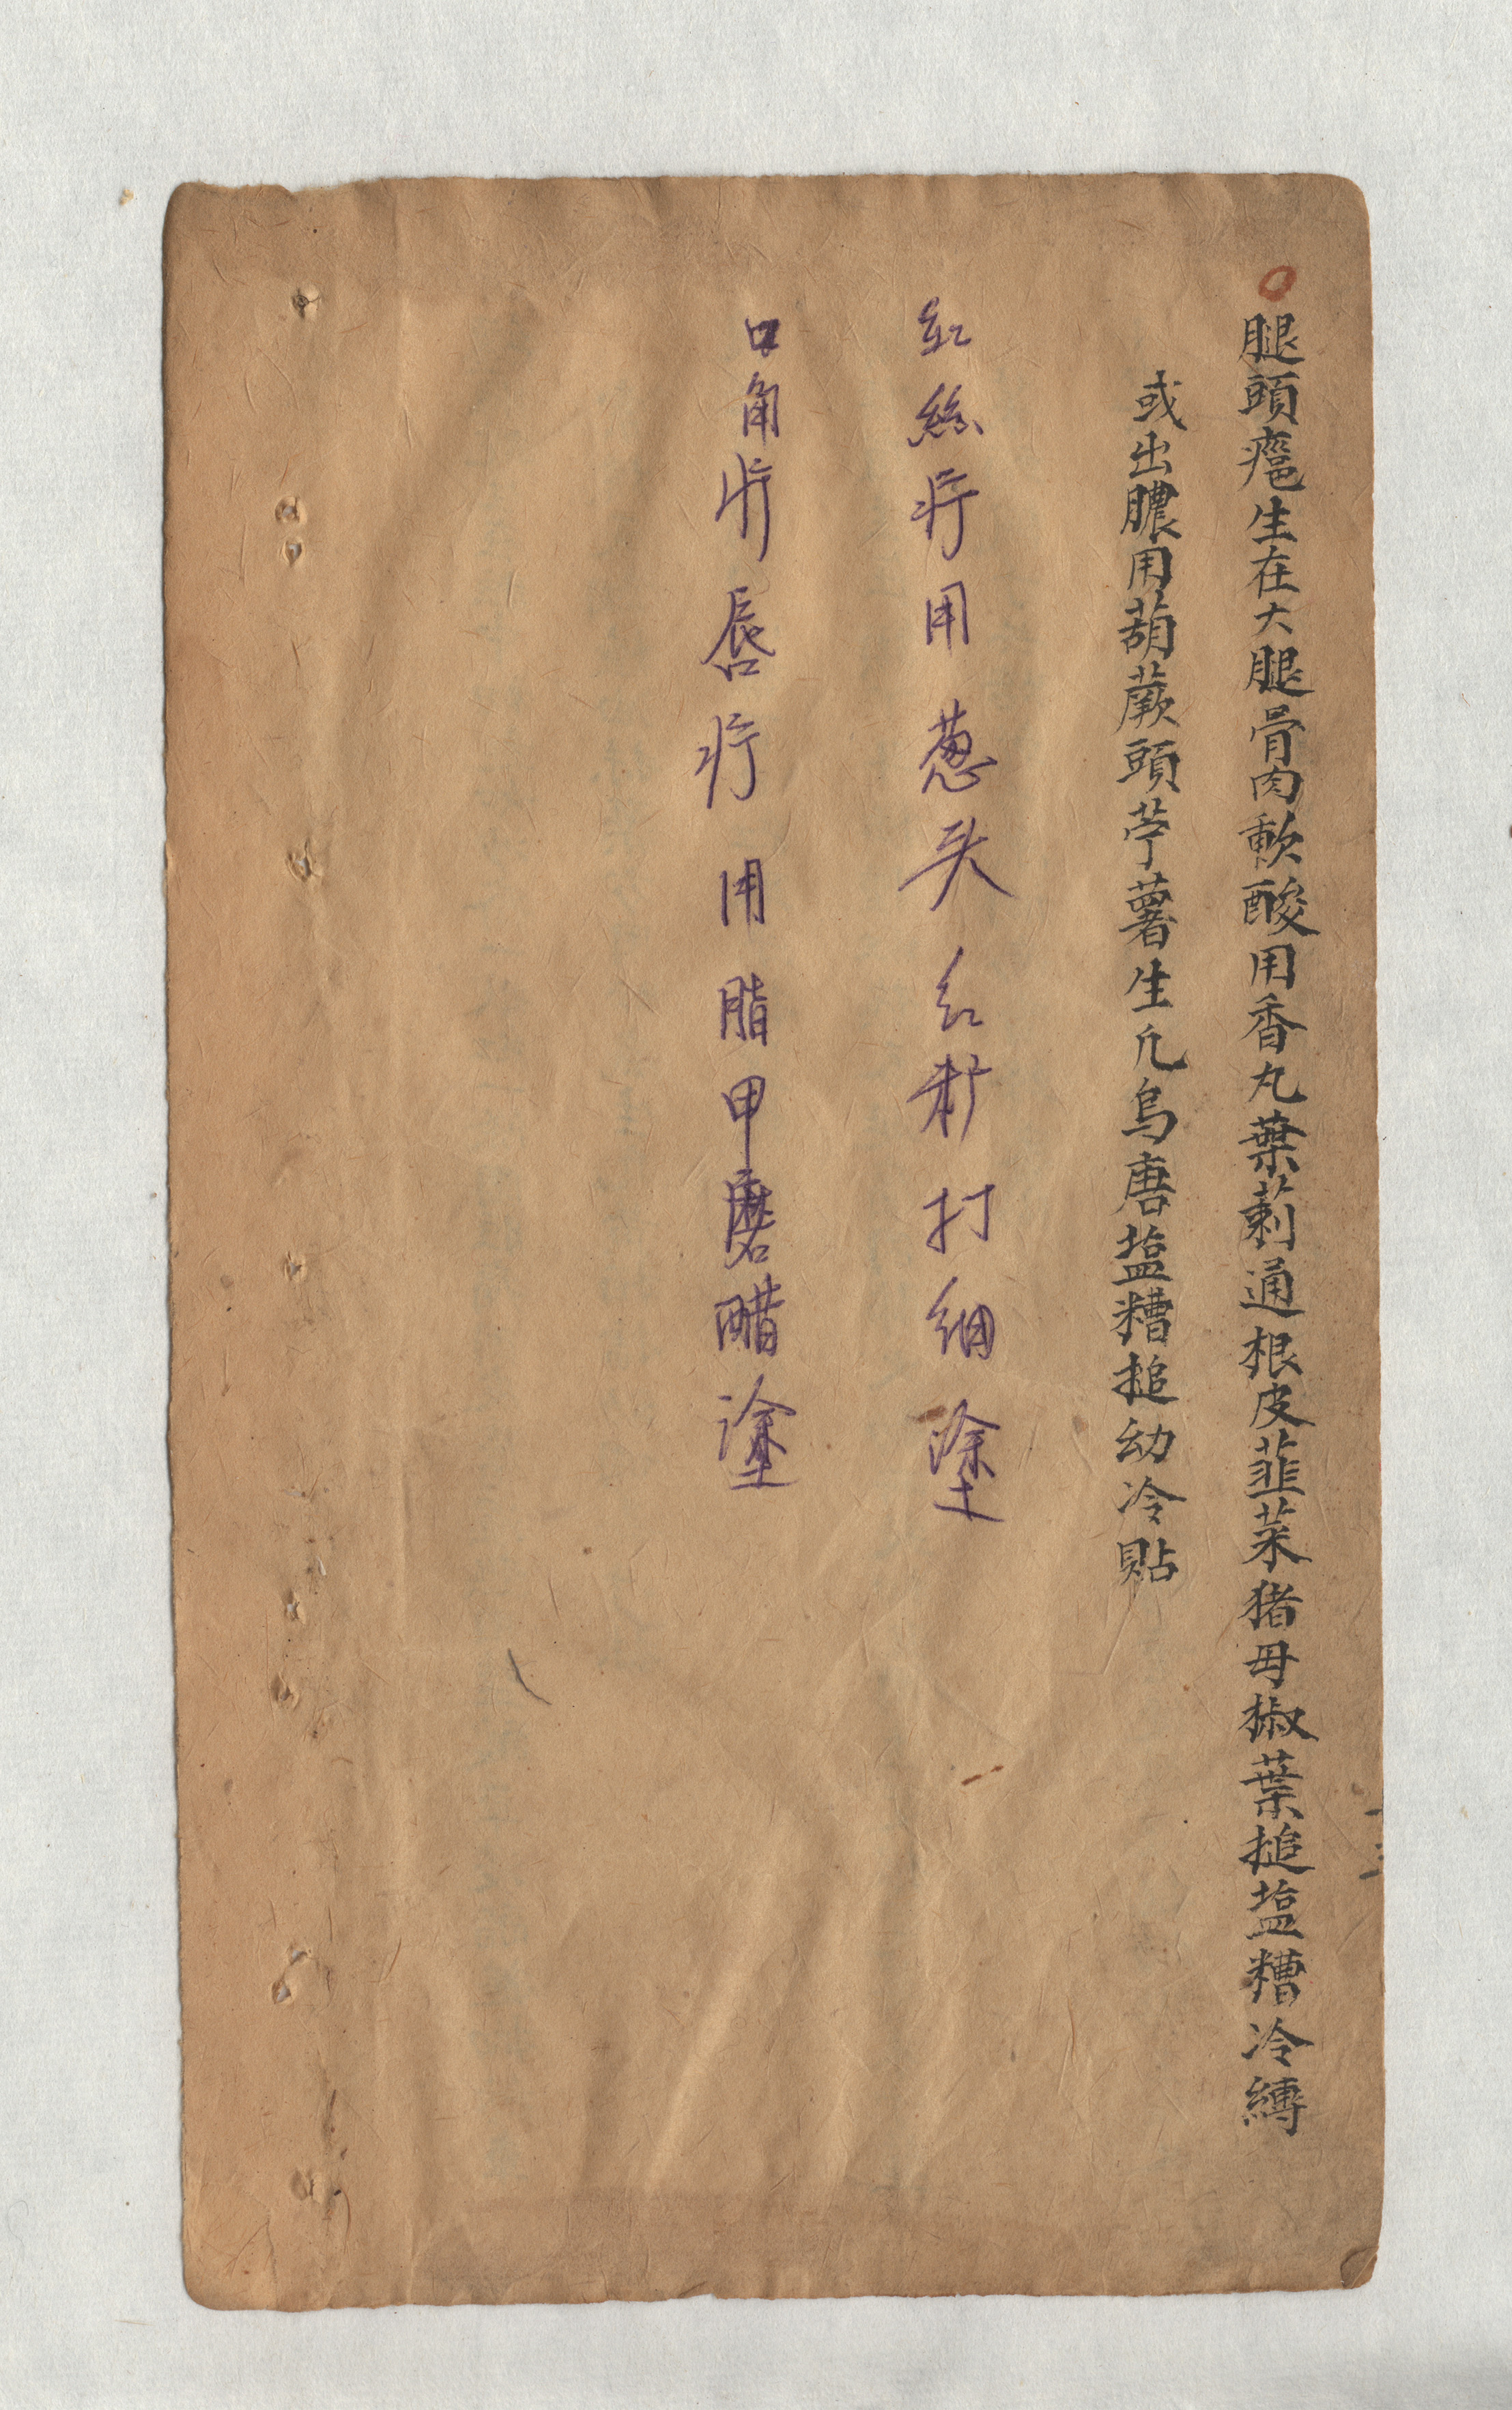 腿頭瘟生在大腿骨肉軟酸用香丸葉莿通根皮韮菜猪母椒葉搥塩糟冷縛
或出膿用葫蕨頭苧薯生凣烏唐塩糟搥幼冷貼
紅絲疔用葱头红打细塗
口角疔唇疔用脂甲磨醋塗